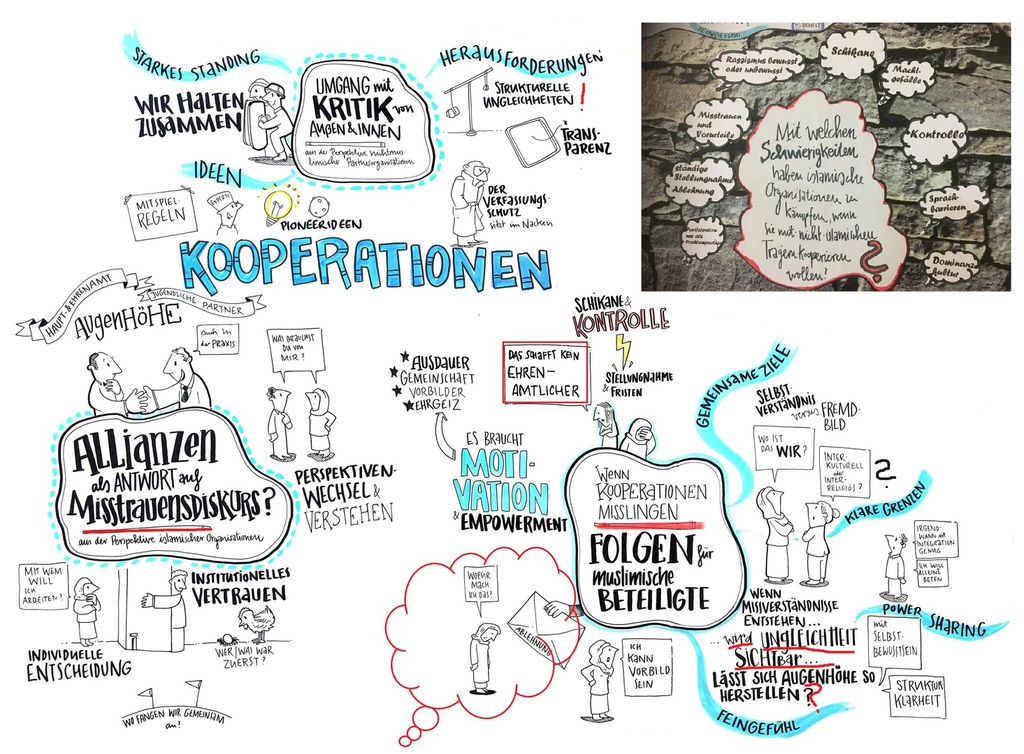 STARKES STANDING
WIR HALTEN
ZUSAMMEN
UMGANG mit
KRITIK von
AUßEN & INNEN
aus der Perspektive nichtmus-
limischer Partnerorganisationen
HERAUSFORDERUNGEN
STRUKTURELLE
UNGLEICHHEITEN!
TRANS-
PARENZ
IDEEN
MITSPIEL-
REGELN
PIONEERIDEEN
DER
VERFASSUNGS-
SCHUTZ
sitzt im Nacken
KOOPERATIONEN
Rassismus bewusst
oder unbewusst
Schikane
Macht-
gefälle
Misstrauen
und
Vorurteile
Kontrolle
ständige
Stellungnahme
Ablehnung
Sprach-
barrieren
Dominanz-
kultur
Mit welchen
Schwierigkeiten
haben islamische
Organisationen zu
kämpfen, wenn
Sie mit nicht-islamischen
Trägern kooperieren
wollen?
HAUPT- & EHRENAMT
JUGENDLICHE PARTNER
AUGENHÖHE
auch in
der PRAXIS
WAS BRAUCHST
DU von
MIR?
ALLIANZEN
als ANTWORT auf
Misstrauensdiskurs?
aus der Perspektive islamischer Organisationen
PERSPEKTIVEN-
WECHSEL &
VERSTEHEN
MIT WEM
WILL
ICH
ARBEITEN?
INSTITUTIONELLES
VERTRAUEN
INDIVIDUELLE
ENTSCHEIDUNG
WER/WAS WAR
ZUERST?
WO FANGEN WIR GEMEINSAM
an?
SCHIKANE &
KONTROLLE
STELLUNGNAHME
& FRISTEN
DAS SCHAFFT KEIN
EHREN-
AMTLICHER
AUSDAUER
GEMEINSCHAFT
VORBILDER
EHRGEIZ
ES BRAUCHT
MOTI-
VATION
& EMPOWERMENT
WENN
KOOPERATIONEN
MISSLINGEN
FOLGEN für
muslimische
BETEILIGTE
WOFÜR
MACH
ICH DAS?
ABLEHNUNG
ICH
KANN
VORBILD
SEIN
GEMEINSAME ZIELE
SELBST-
VERSTÄNDNIS
versus FREMD-
BILD
WO IST
DAS WIR?
INTER-
KULTURELL
oder INTER-
RELIGIÖS?
?
KLARE GRENZEN
IRGEND-
WANN ist
INTEGRATION
GENUG
ICH WILL
ALLEINE
BETEN
WENN
MISSVERSTÄNDNISSE
ENTSTEHEN...
... wird UNGLEICHHEIT
SICHTBAR...
LÄSST SICH AUGENHÖHE SO
HERSTELLEN?
POWER SHARING
mit
SELBST-
BEWUSSTSEIN
STRUKTUR
KLARHEIT
FEINGEFÜHL